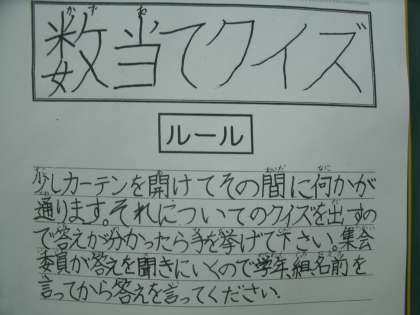 数当てクイズ
ルール
少しカーテンを開けてその間に何かが
通ります。それについてのクイズを出すの
で答えが分かったら手を挙げて下さい。集会
委員が答えを聞きにいくので学年、組、名前を
言ってから答えを言ってください。